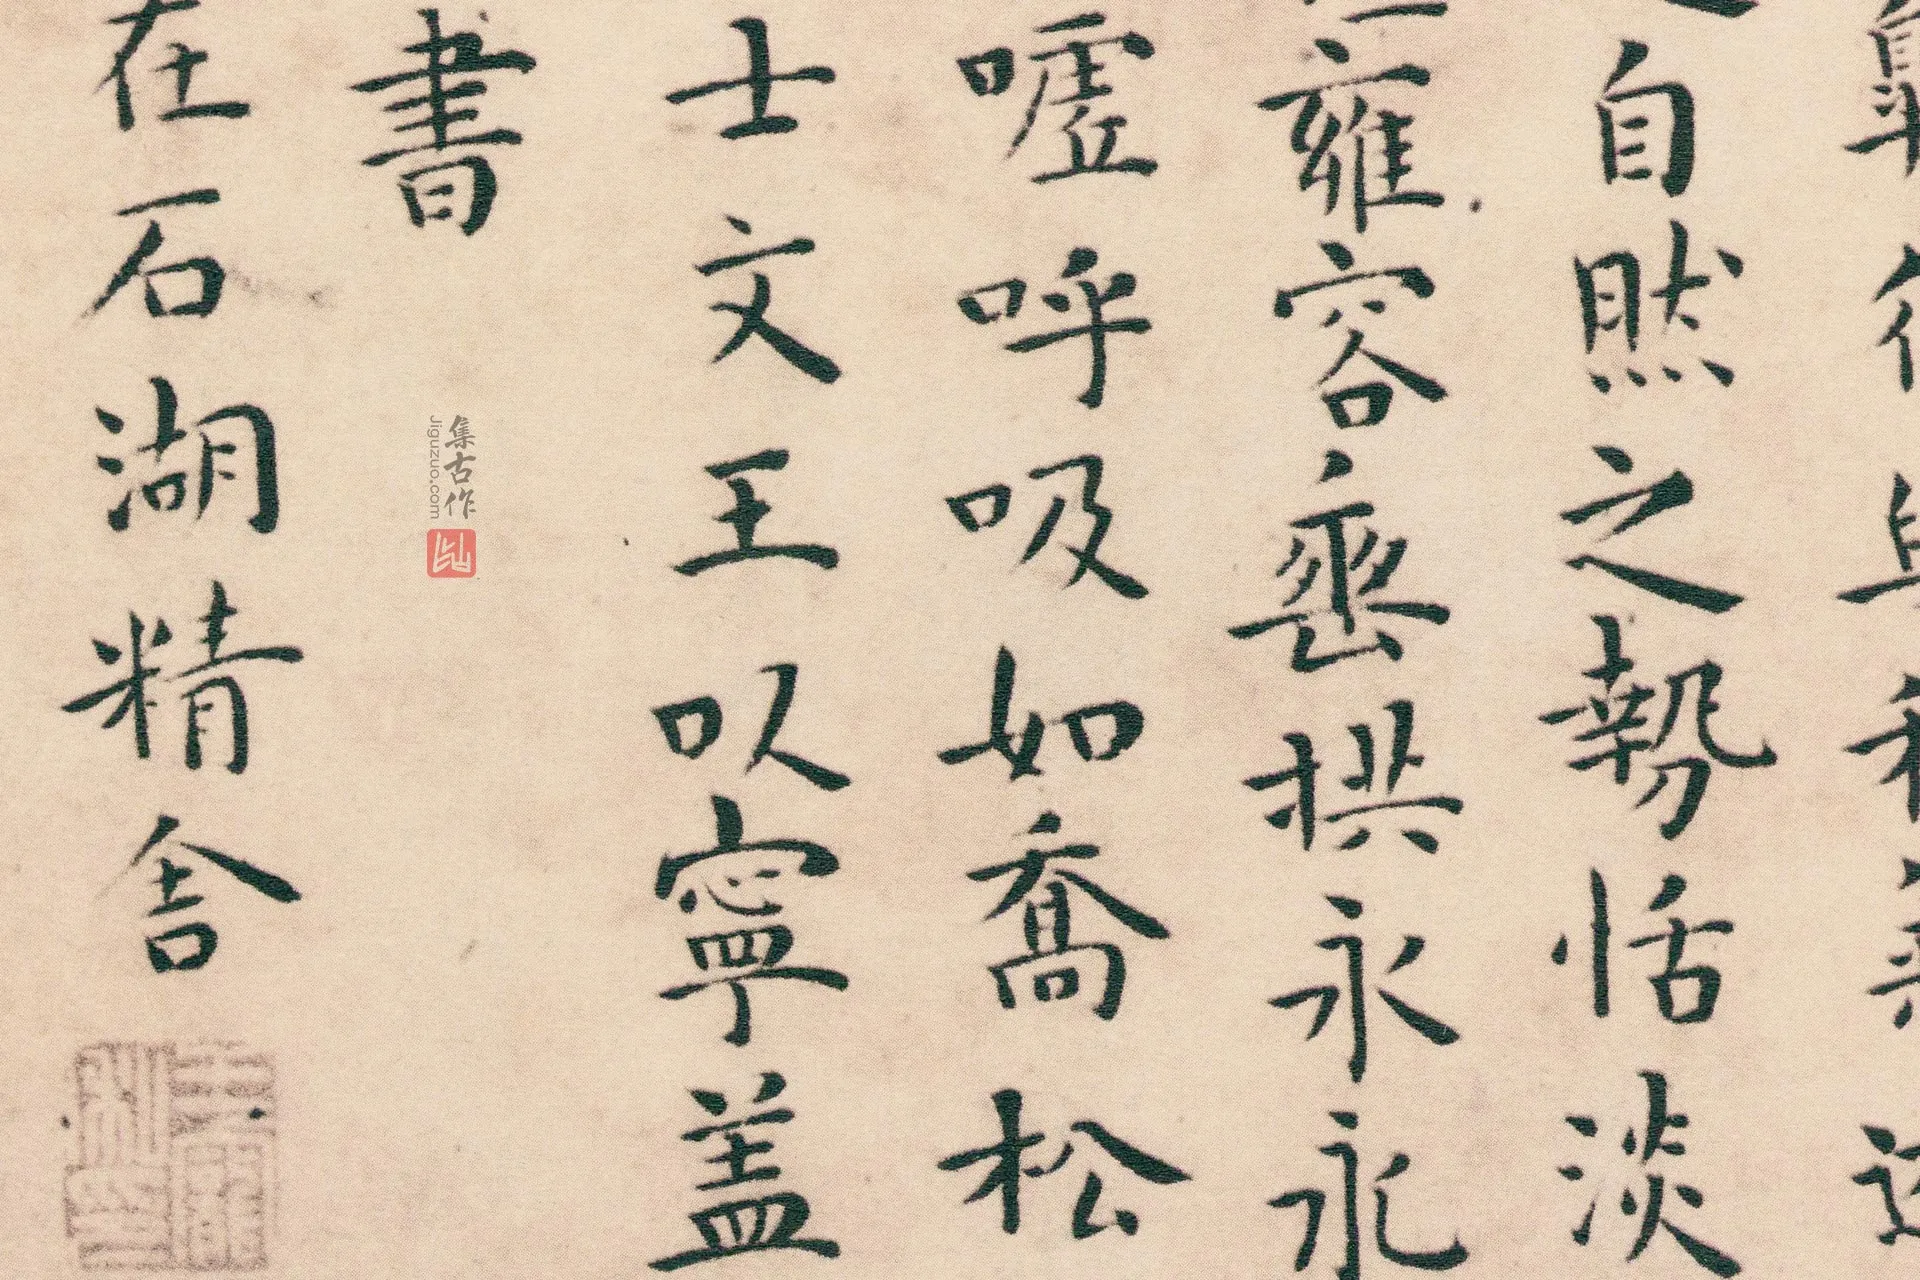 自然之勢恬淡
雍容垂拱永永
嘘呼吸如喬松
士文王以寧蓋
書
在石湖精舍
集古作
Jiguzuo.com